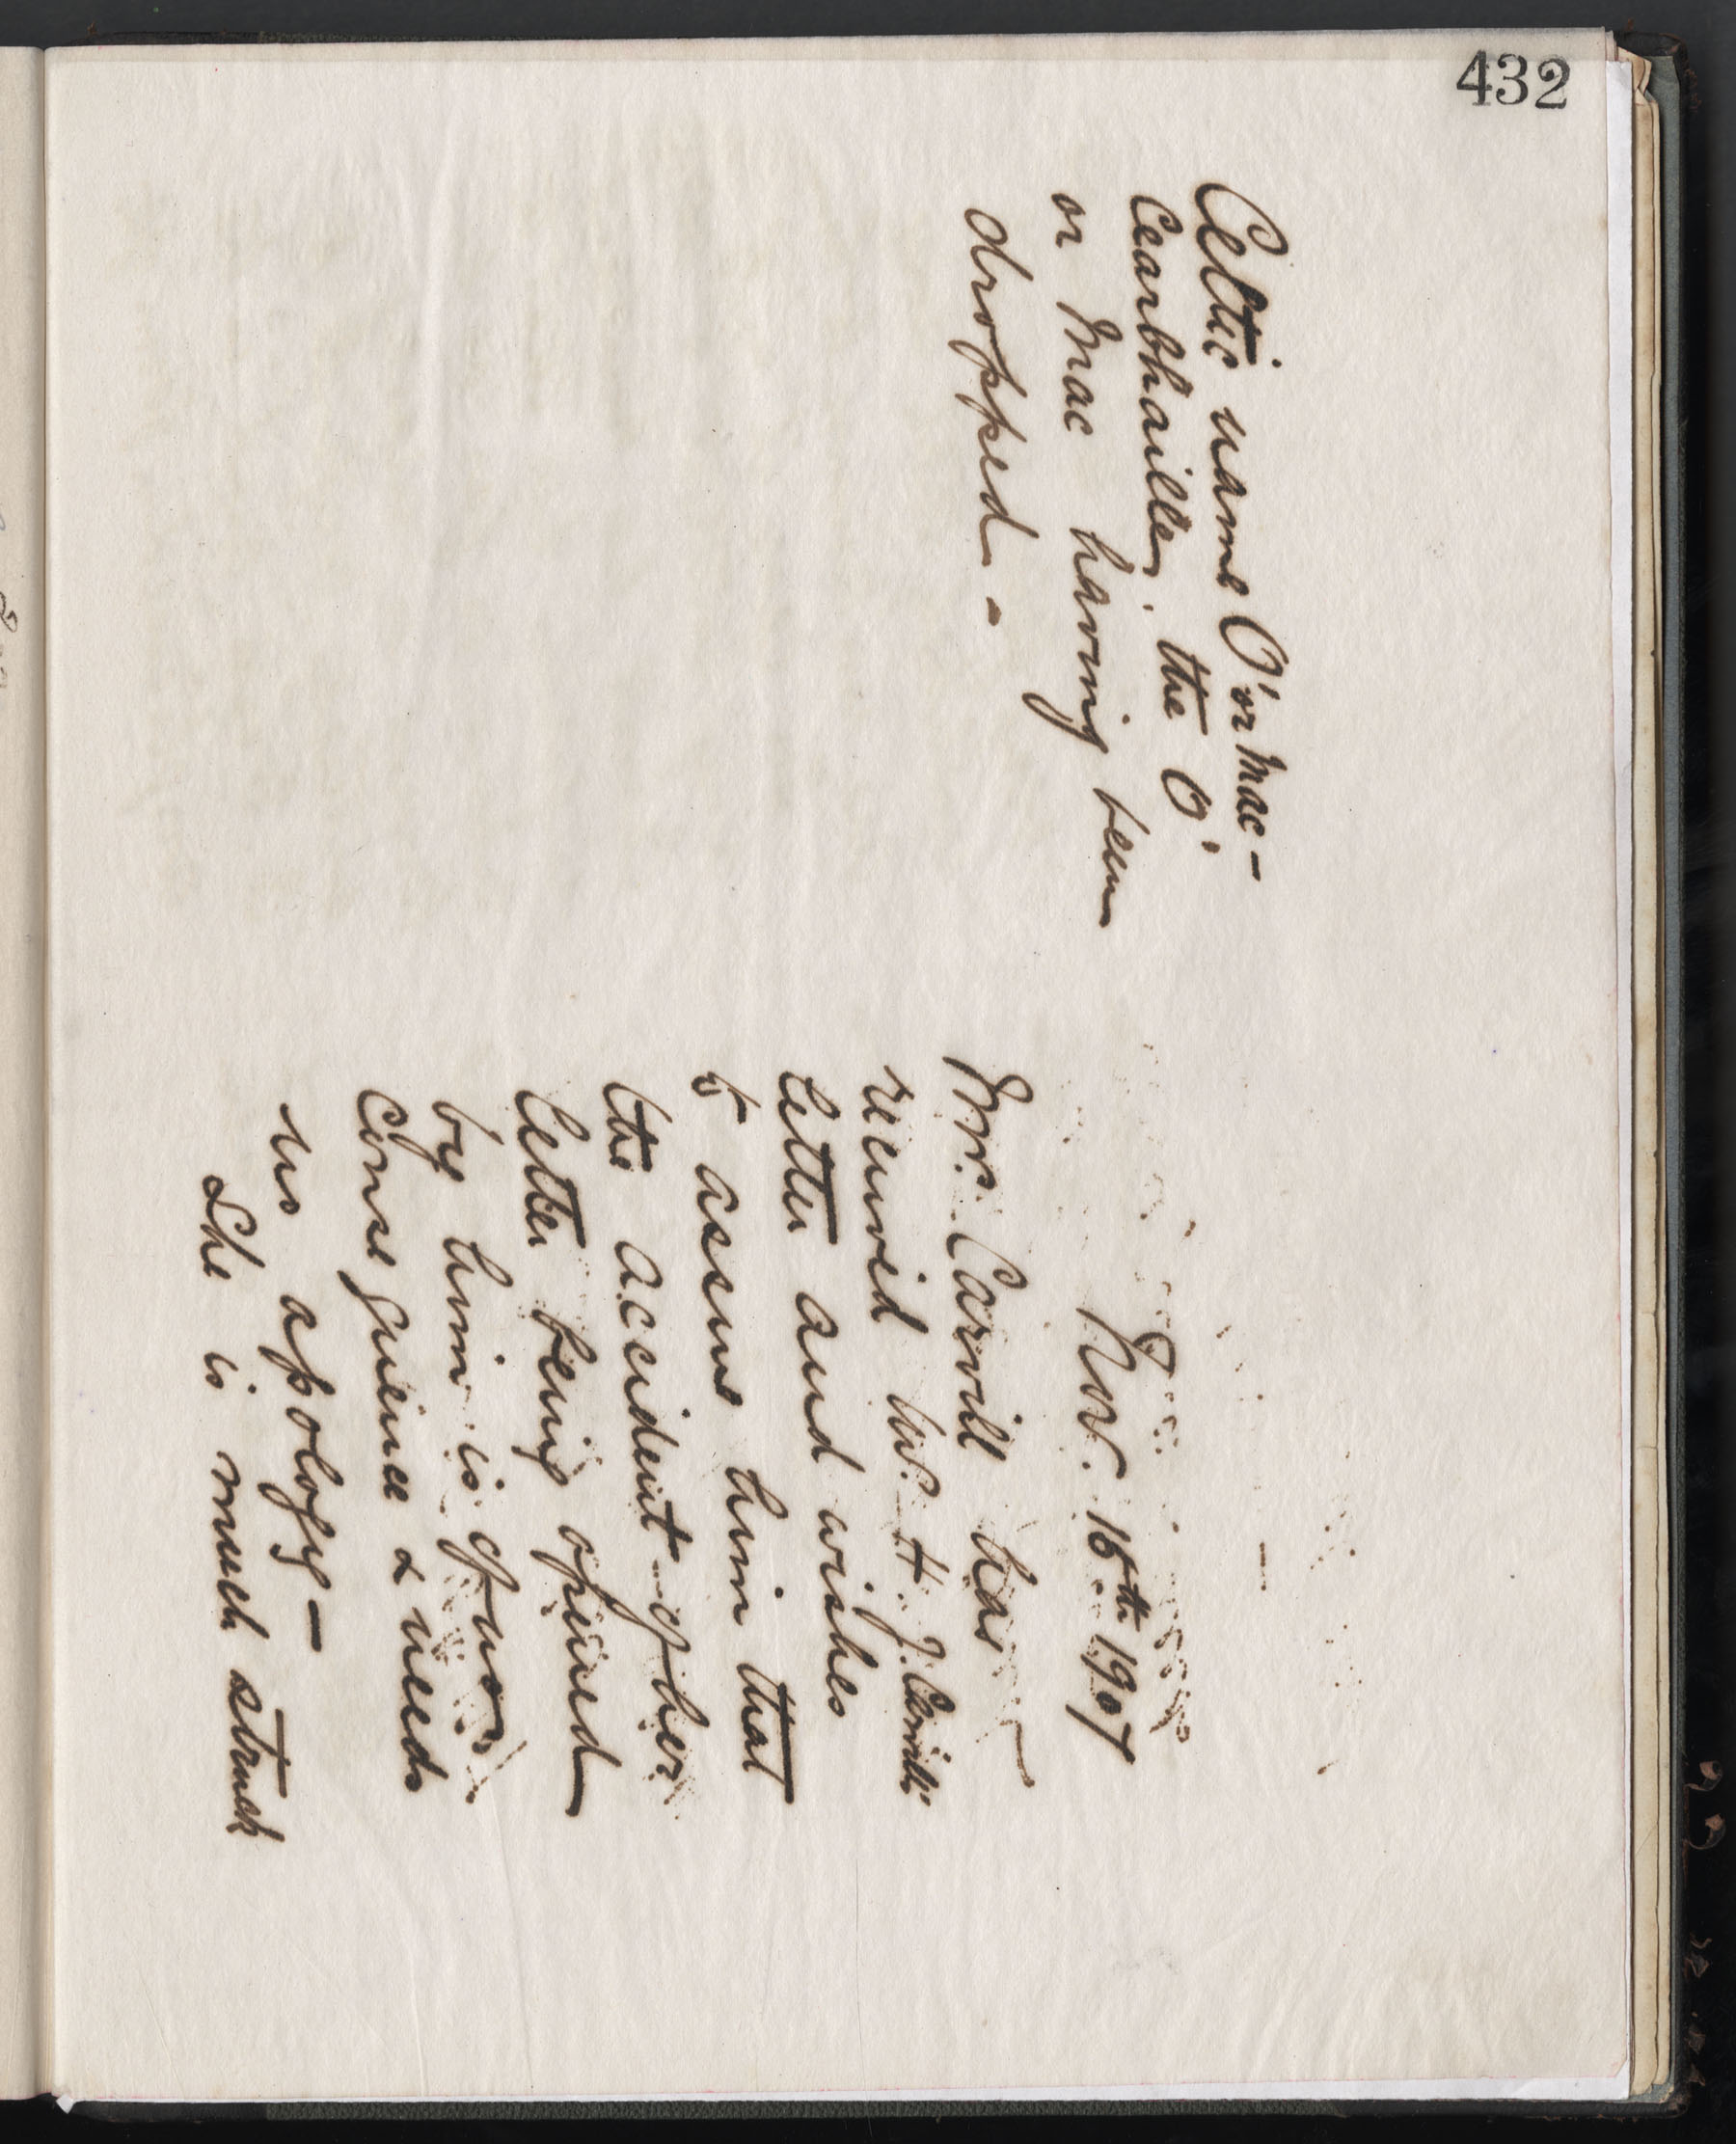 432
Celtic name O' or Mac -
Cearbhaille, the O'
or Mac having been
dropped -
Nov. 16th 1907
Mrs. Carvill has
received W. H. J. Carvill's
letter and wishes
to assure him that
the accident of her
letter being opened
by him is of no
consequence & needs
no apology -
She is much struck